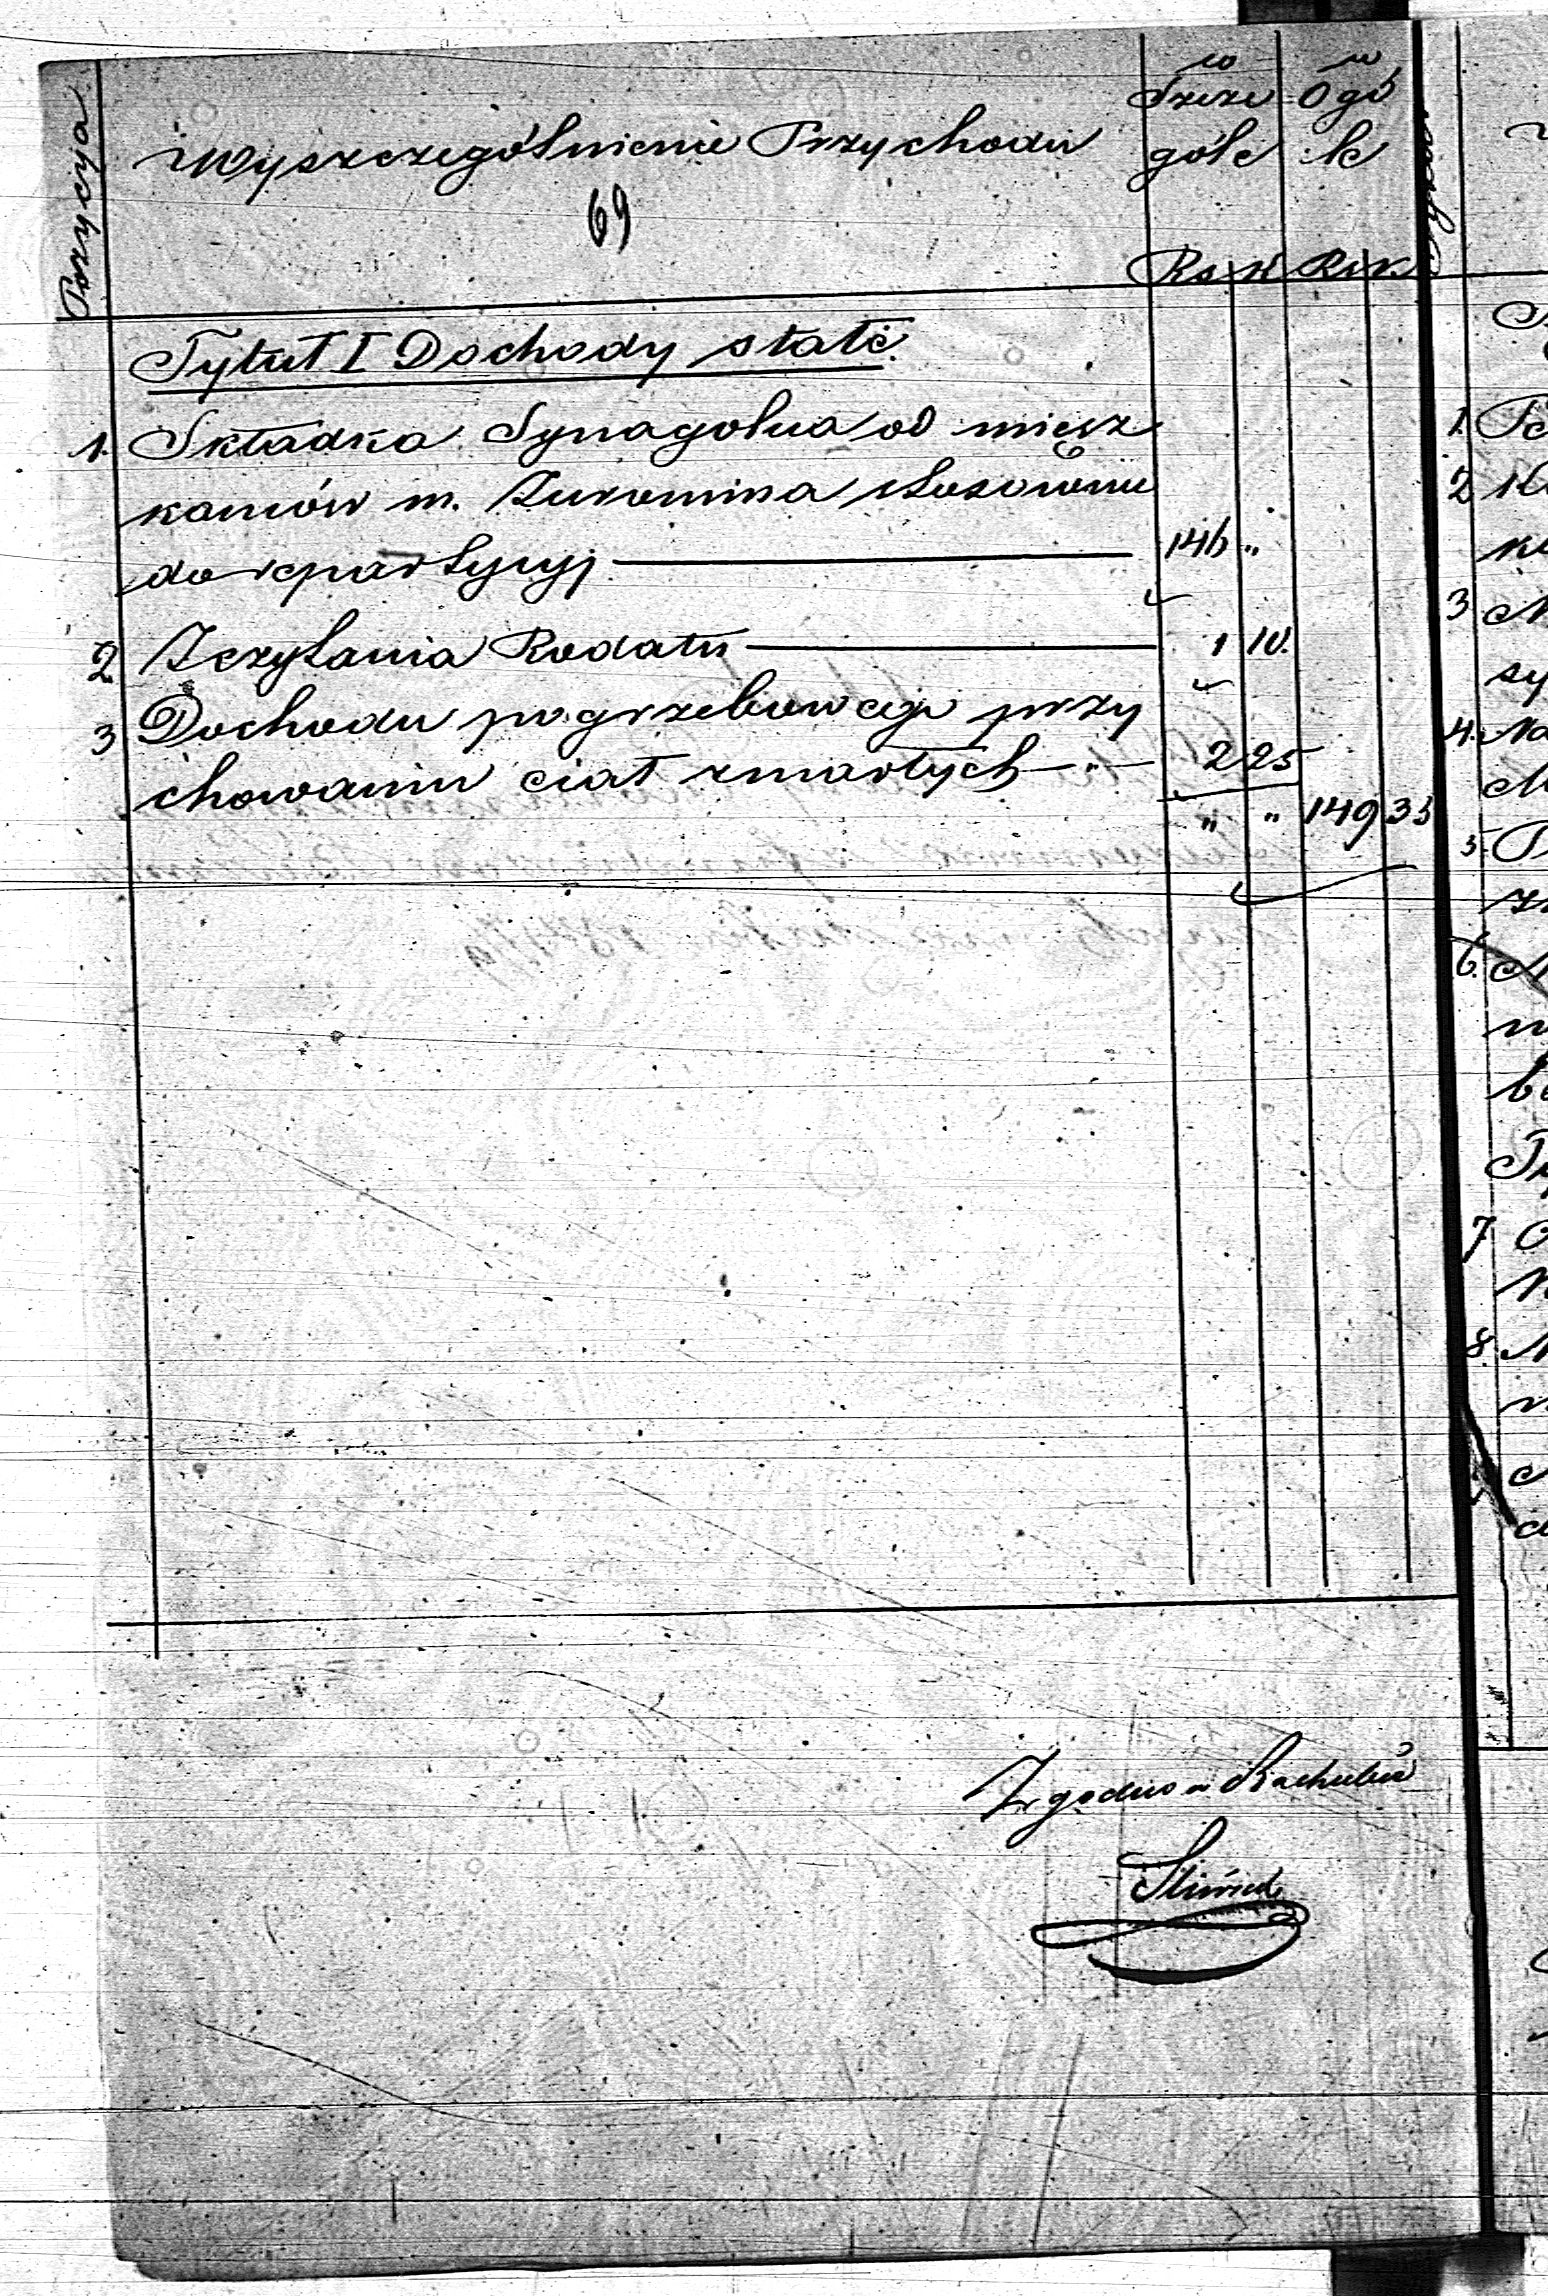 Pozycja
Wyszczególnienie Przychodu
w Szcze góle
w Ogó le
69
Rs k Rs k.
Tytuł I Dochody stałe.
1. Składka Synagolna od miesz
kańców m. Żuromina stosownie
do repartycyj 146 "
2. Z czytania Rodału 1 10.
3 Dochodu pogrzebowego przy
chowaniu ciał zmarłych - " - 2 25
" " 149 35
Zgodno w Rachubie
1.
2
3
4.
5.
6.
7
8.